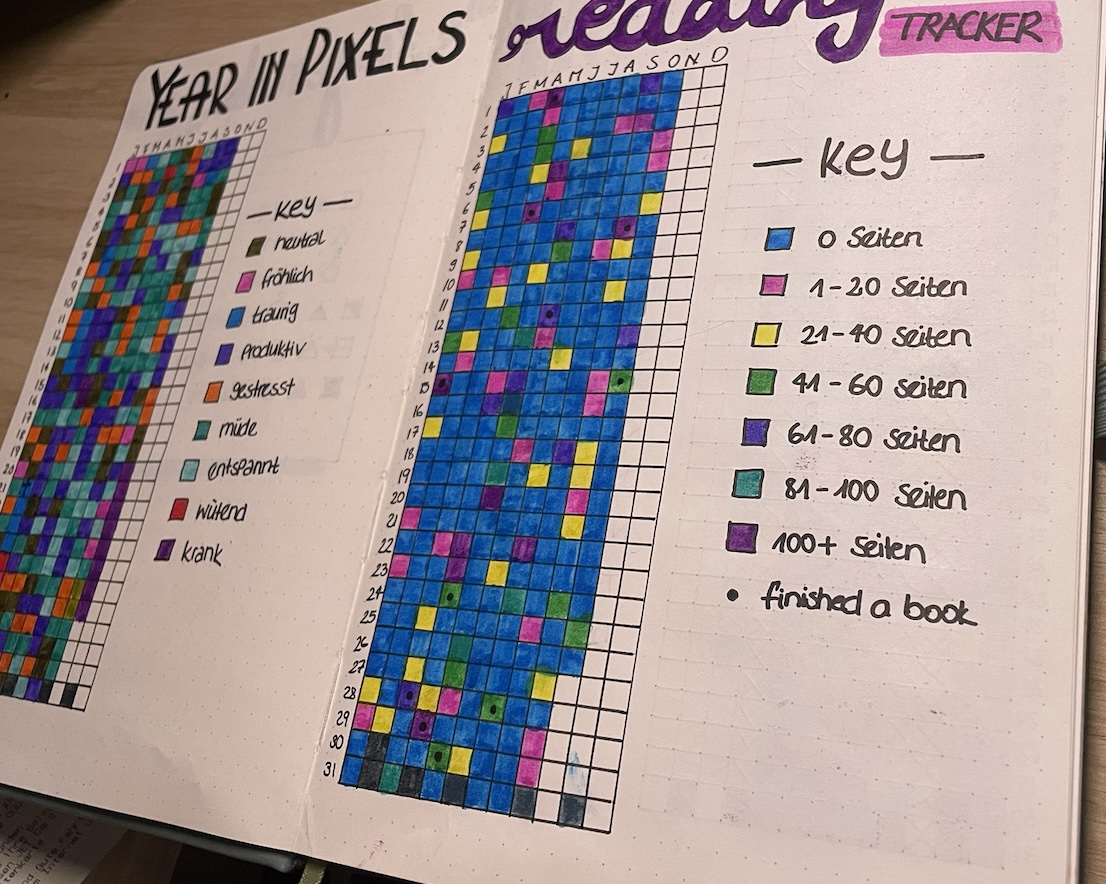 YEAR IN PIXELS
J F M A M J J A S O N D
1
2
3
4
5
6
7
8
9
10
11
12
13
14
15
16
17
18
19
20
21
— Key —
neutral
fröhlich
traurig
Produktiv
gestresst
müde
entspannt
wütend
krank
reading
TRACKER
J F M A M J J A S O N D
1
2
3
4
5
6
7
8
9
10
11
12
13
14
15
16
17
18
19
20
21
22
23
24
25
26
27
28
29
30
31
— Key —
0 Seiten
1-20 Seiten
21-40 Seiten
41-60 Seiten
61-80 Seiten
81-100 Seiten
100+ Seiten
• finished a book